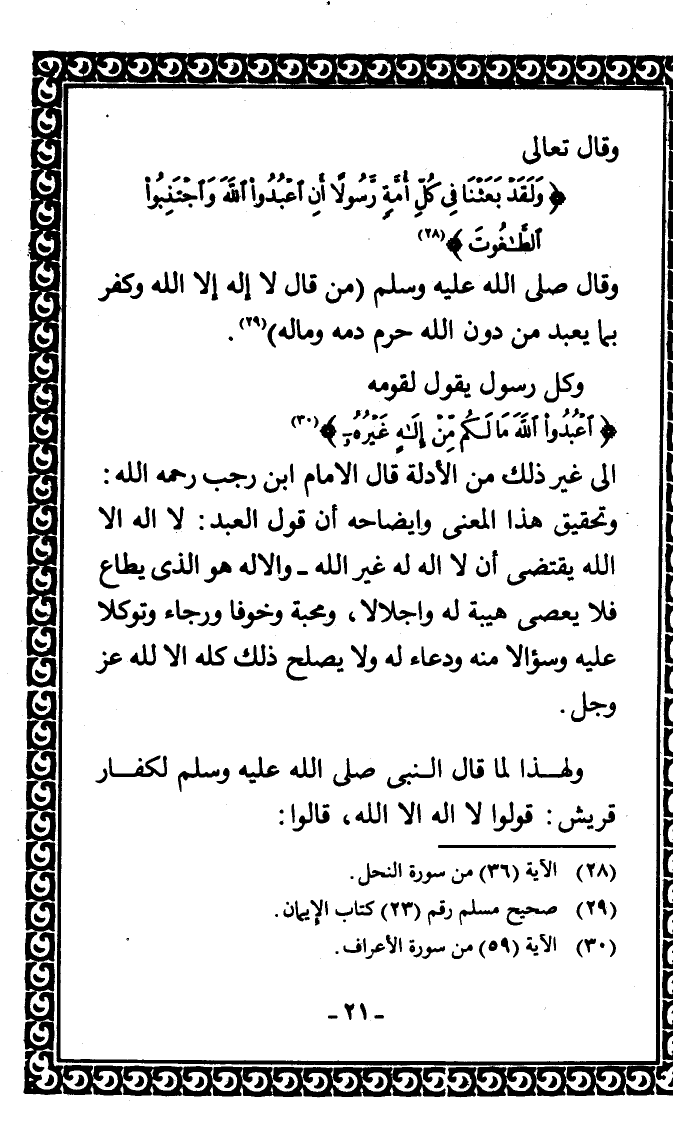 وقال تعالى
﴿ وَلَقَدْ بَعَثْنَا فِي كُلِّ أُمَّةٍ رَّسُولًا أَنِ ٱعْبُدُوا۟ ٱللَّهَ وَٱجْتَنِبُوا۟
ٱلطَّٰغُوتَ ﴾(٢٨)
وقال صلى الله عليه وسلم (من قال لا إله إلا الله وكفر
بما يعبد من دون الله حرم دمه وماله)(٢٩) .
وكل رسول يقول لقومه
﴿ ٱعْبُدُوا۟ ٱللَّهَ مَا لَكُم مِّنْ إِلَٰهٍ غَيْرُهُۥٓ ﴾(٣٠)
الى غير ذلك من الأدلة قال الامام ابن رجب رحمه الله :
وتحقيق هذا المعنى وايضاحه أن قول العبد : لا اله الا
الله يقتضى أن لا اله له غير الله ـ والاله هو الذى يطاع
فلا يعصى هيبة له واجلالا ، ومحبة وخوفا ورجاء وتوكلا
عليه وسؤالا منه ودعاء له ولا يصلح ذلك كله الا لله عز
وجل .
ولهـذا لما قال النبى صلى الله عليه وسلم لكفـار
قريش : قولوا لا اله الا الله ، قالوا :
(٢٨) الآية (٣٦) من سورة النحل .
(٢٩) صحيح مسلم رقم (٢٣) كتاب الإيمان .
(٣٠) الآية (٥٩) من سورة الأعراف .
ـ ٢١ ـ